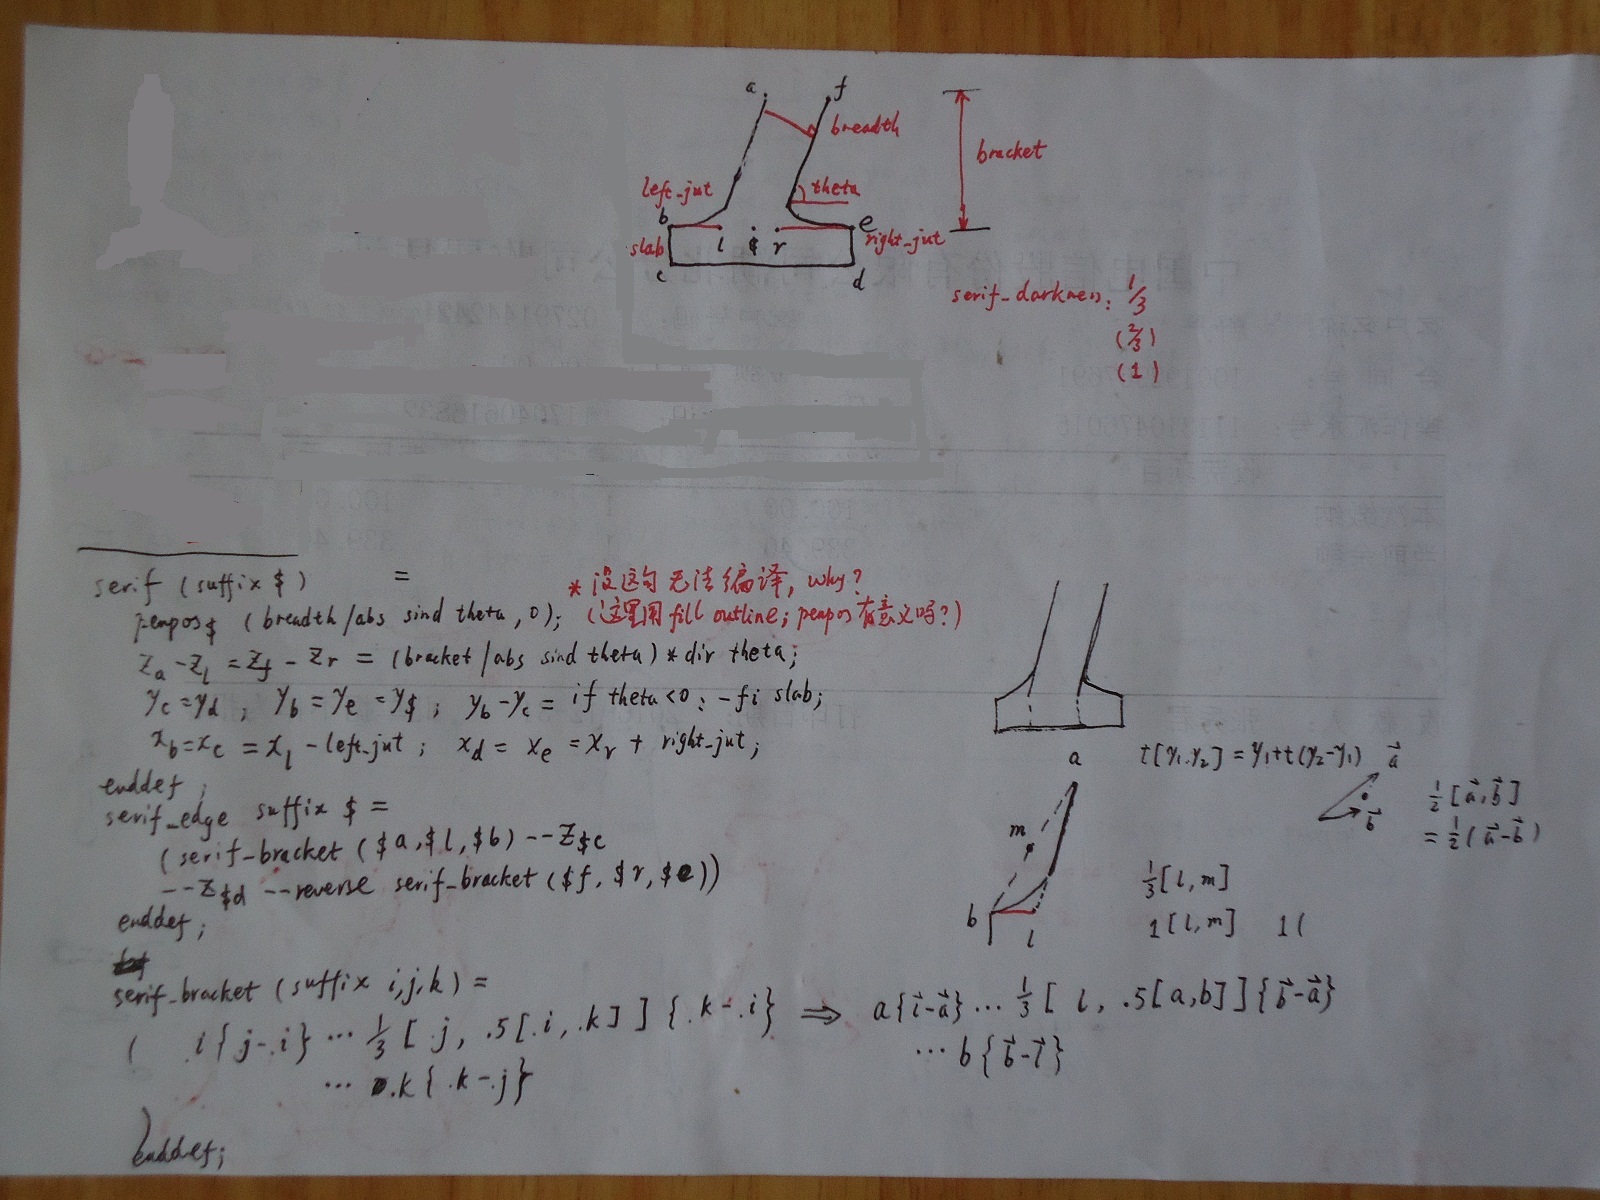 a
f
breadth
bracket
left_jut
theta
b
e
right_jut
slab
l $ r
c
d
serif_darkness: 1/3
(2/3)
(1)
serif (suffix $) =
* 没这句无法编译, why?
penpos$ (breadth/abs sind theta, 0);
(这里用 fill outline; penpos有意义吗?)
Za - Zl = Zf - Zr = (bracket/abs sind theta) * dir theta;
yc = yd ; yb = ye = y$ ; yb - yc = if theta<0: -fi slab;
xb = xc = xl - left_jut ; xd = xe = xr + right_jut;
enddef;
serif_edge suffix $ =
(serif-bracket ($a, $l, $b) -- Z$c
-- Z$d -- reverse serif_bracket ($f, $r, $e))
enddef;
serif_bracket (suffix i,j,k) =
( .i{j-.i} ... 1/3 [.j, .5[.i, .k]] {.k-.i}
... .k{.k-.j}
)
enddef;
a
t[y1.y2] = y1+t(y2-y1)
a⃗
b⃗
1/2 [a⃗,b⃗]
= 1/2 (a⃗-b⃗)
m
b
l
1/3[l,m]
1[l,m] 1(
⇒ a{l⃗-a⃗} ... 1/3 [ l, .5[a,b]]{b⃗-a⃗}
... b{b⃗-l⃗}